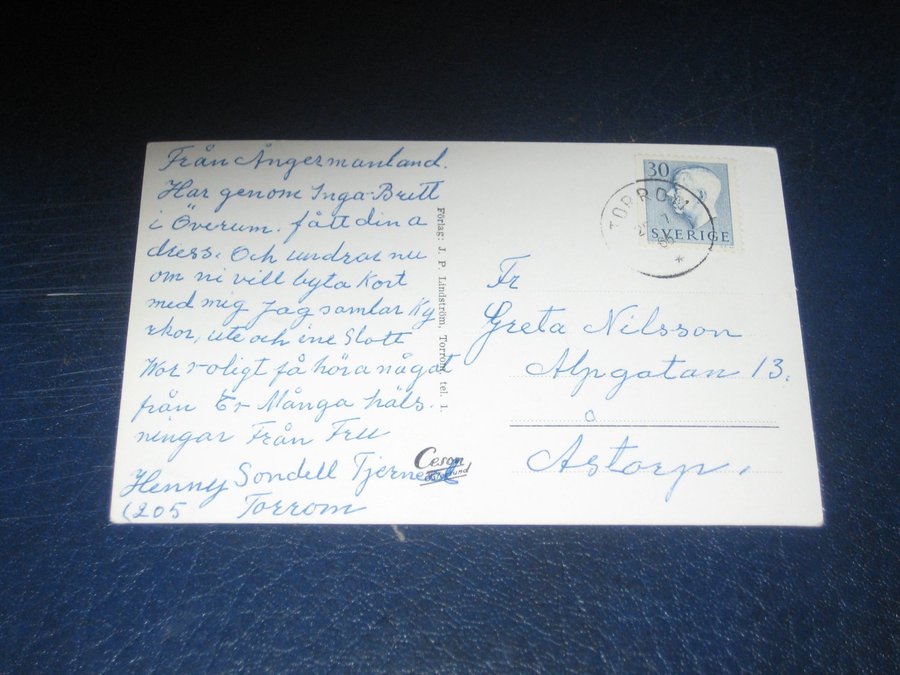 Från Ångermanland.
Har genom Inga-Britt
i Överum. fått din a
dress. Och undrar nu
om ni vill byta Kort
med mig Jag samlar Ky
rkor, ute och ine Slott
Wor roligt få höra något
från Er Många häls.
ningar Från Fru
Henny Sondell Tjerne
(205 Torrom
Förlag: J. P. Lindström, Torrom, tel. 1.
Ceson
30
SVERIGE
TORROM
Fr
Greta Nilsson
Alpgatan 13.
Åstorp.